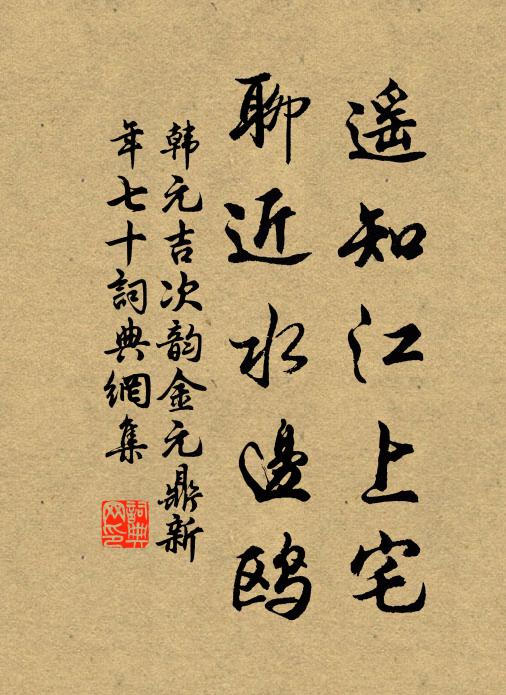 遥知江上宅
聊近水邊鸥
韩元吉次韵金元鼎新
年七十詞典網集
詞典
网印